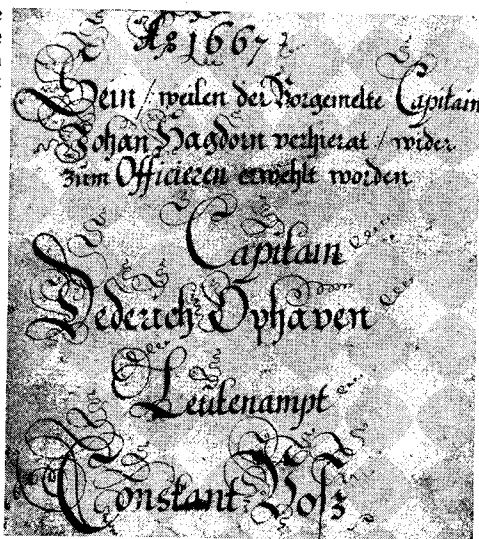 Aº 1667
Sein / weilen der Vorgemelte Capitain
Johan Hagdorn verhierat / wider
zum Officieren erwehlt worden
Capitain
Dederich Ophaven
Leutenampt
Constant Vosz